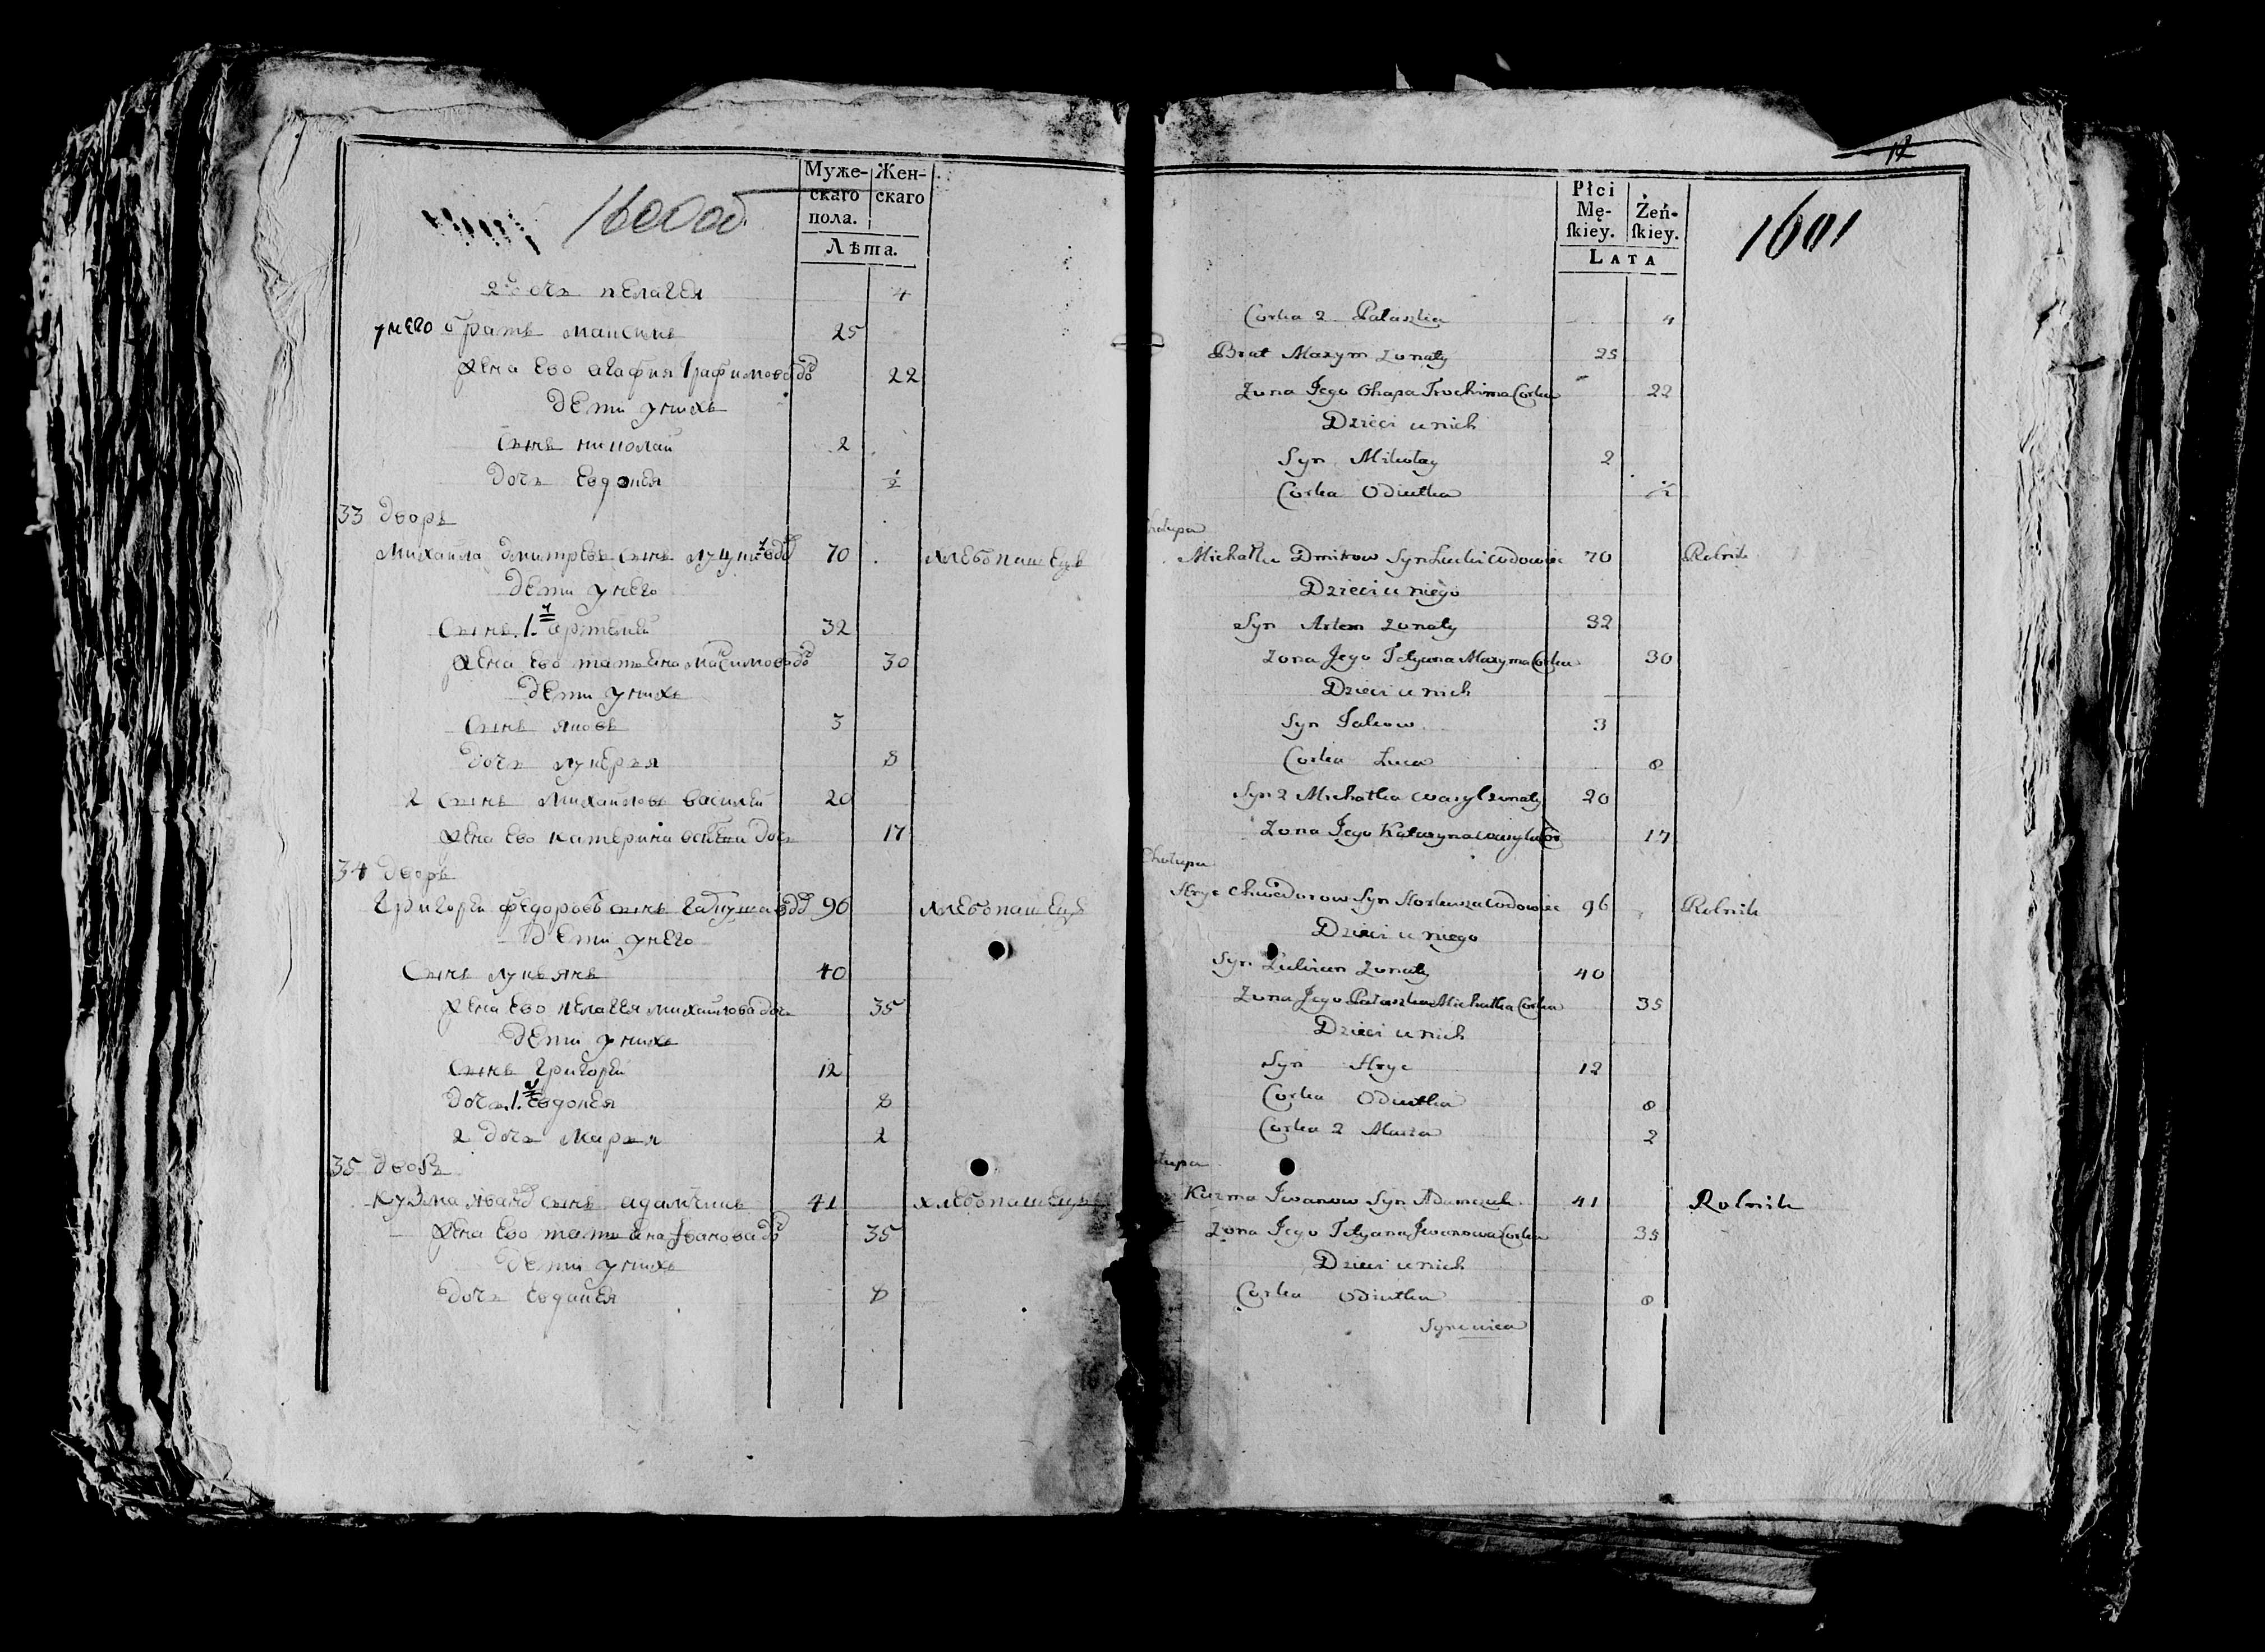 1600об
Муже-
скаго
пола.
Жен-
скаго
Лѣта.
2 дочь пелагея 4
унего братъ максимъ 25
жена ево агафия трафимова дочь 22
дети унихъ
сынъ николай 2
дочь евдокея ½
33 дворъ
Михайла дмитревъ сынъ 70 хлебопашецъ
дети унего
сынъ 1й артемий 32
жена ево татьяна максимова до 30
дети унихъ
сынъ яковъ 3
дочь лукерья 8
2 сынъ михайловъ василей 20
жена ево катерина дочь 17
34 дворъ
Григорей федоровъ сынъ 96 хлебопашецъ
дети унего
сынъ лукьянъ 40
жена ево пелагея михайлова дочь 35
дети унихъ
сынъ григорей 12
дочь 1я евдокея 8
2 дочь марья 2
35 дворъ
Кузма Иванов сынъ адамчикъ 41 хлебопашецъ
жена ево татьяна Иванова до 35
дети унихъ
дочь евдокея 8
12
1601
Płci
Mę-
ſkiey.
Żeń-
ſkiey.
LATA
Corka 2 Palaszka 4
Brat Maxym Zonaty 25
Zona Jego Ohapa Trochima Corka 22
Dzieci u nich
Syn Mikołay 2
Corka Odiutka ½
Chałupa
Michałko Dmitrow Syn wdowiec 70 Rolnik
Dzieci u niego
Syn Artem Zonaty 32
Zona Jego Tetyana Maxyma Corka 30
Dzieci u nich
Syn Jakow 3
Corka Luca 8
Syn 2 Michałka Wasyl zonaty 20
Zona Jego Katarzyna Wasyla Cor 17
Chałupa
Hryc Chwedorow Syn wdowiec 96 Rolnik
Dzieci u niego
Syn Łukian Zonaty 40
Zona Jego Palaszka Michałka Corka 35
Dzieci u nich
Syn Hryc 12
Corka Odiutka 8
Corka 2 Marza 2
Chałupa
Kuzma Iwanow Syn Adamczuk 41 Rolnik
Zona Jego Tetyana Iwanowa Corka 35
Dzieci u nich
Corka Odiutka 8